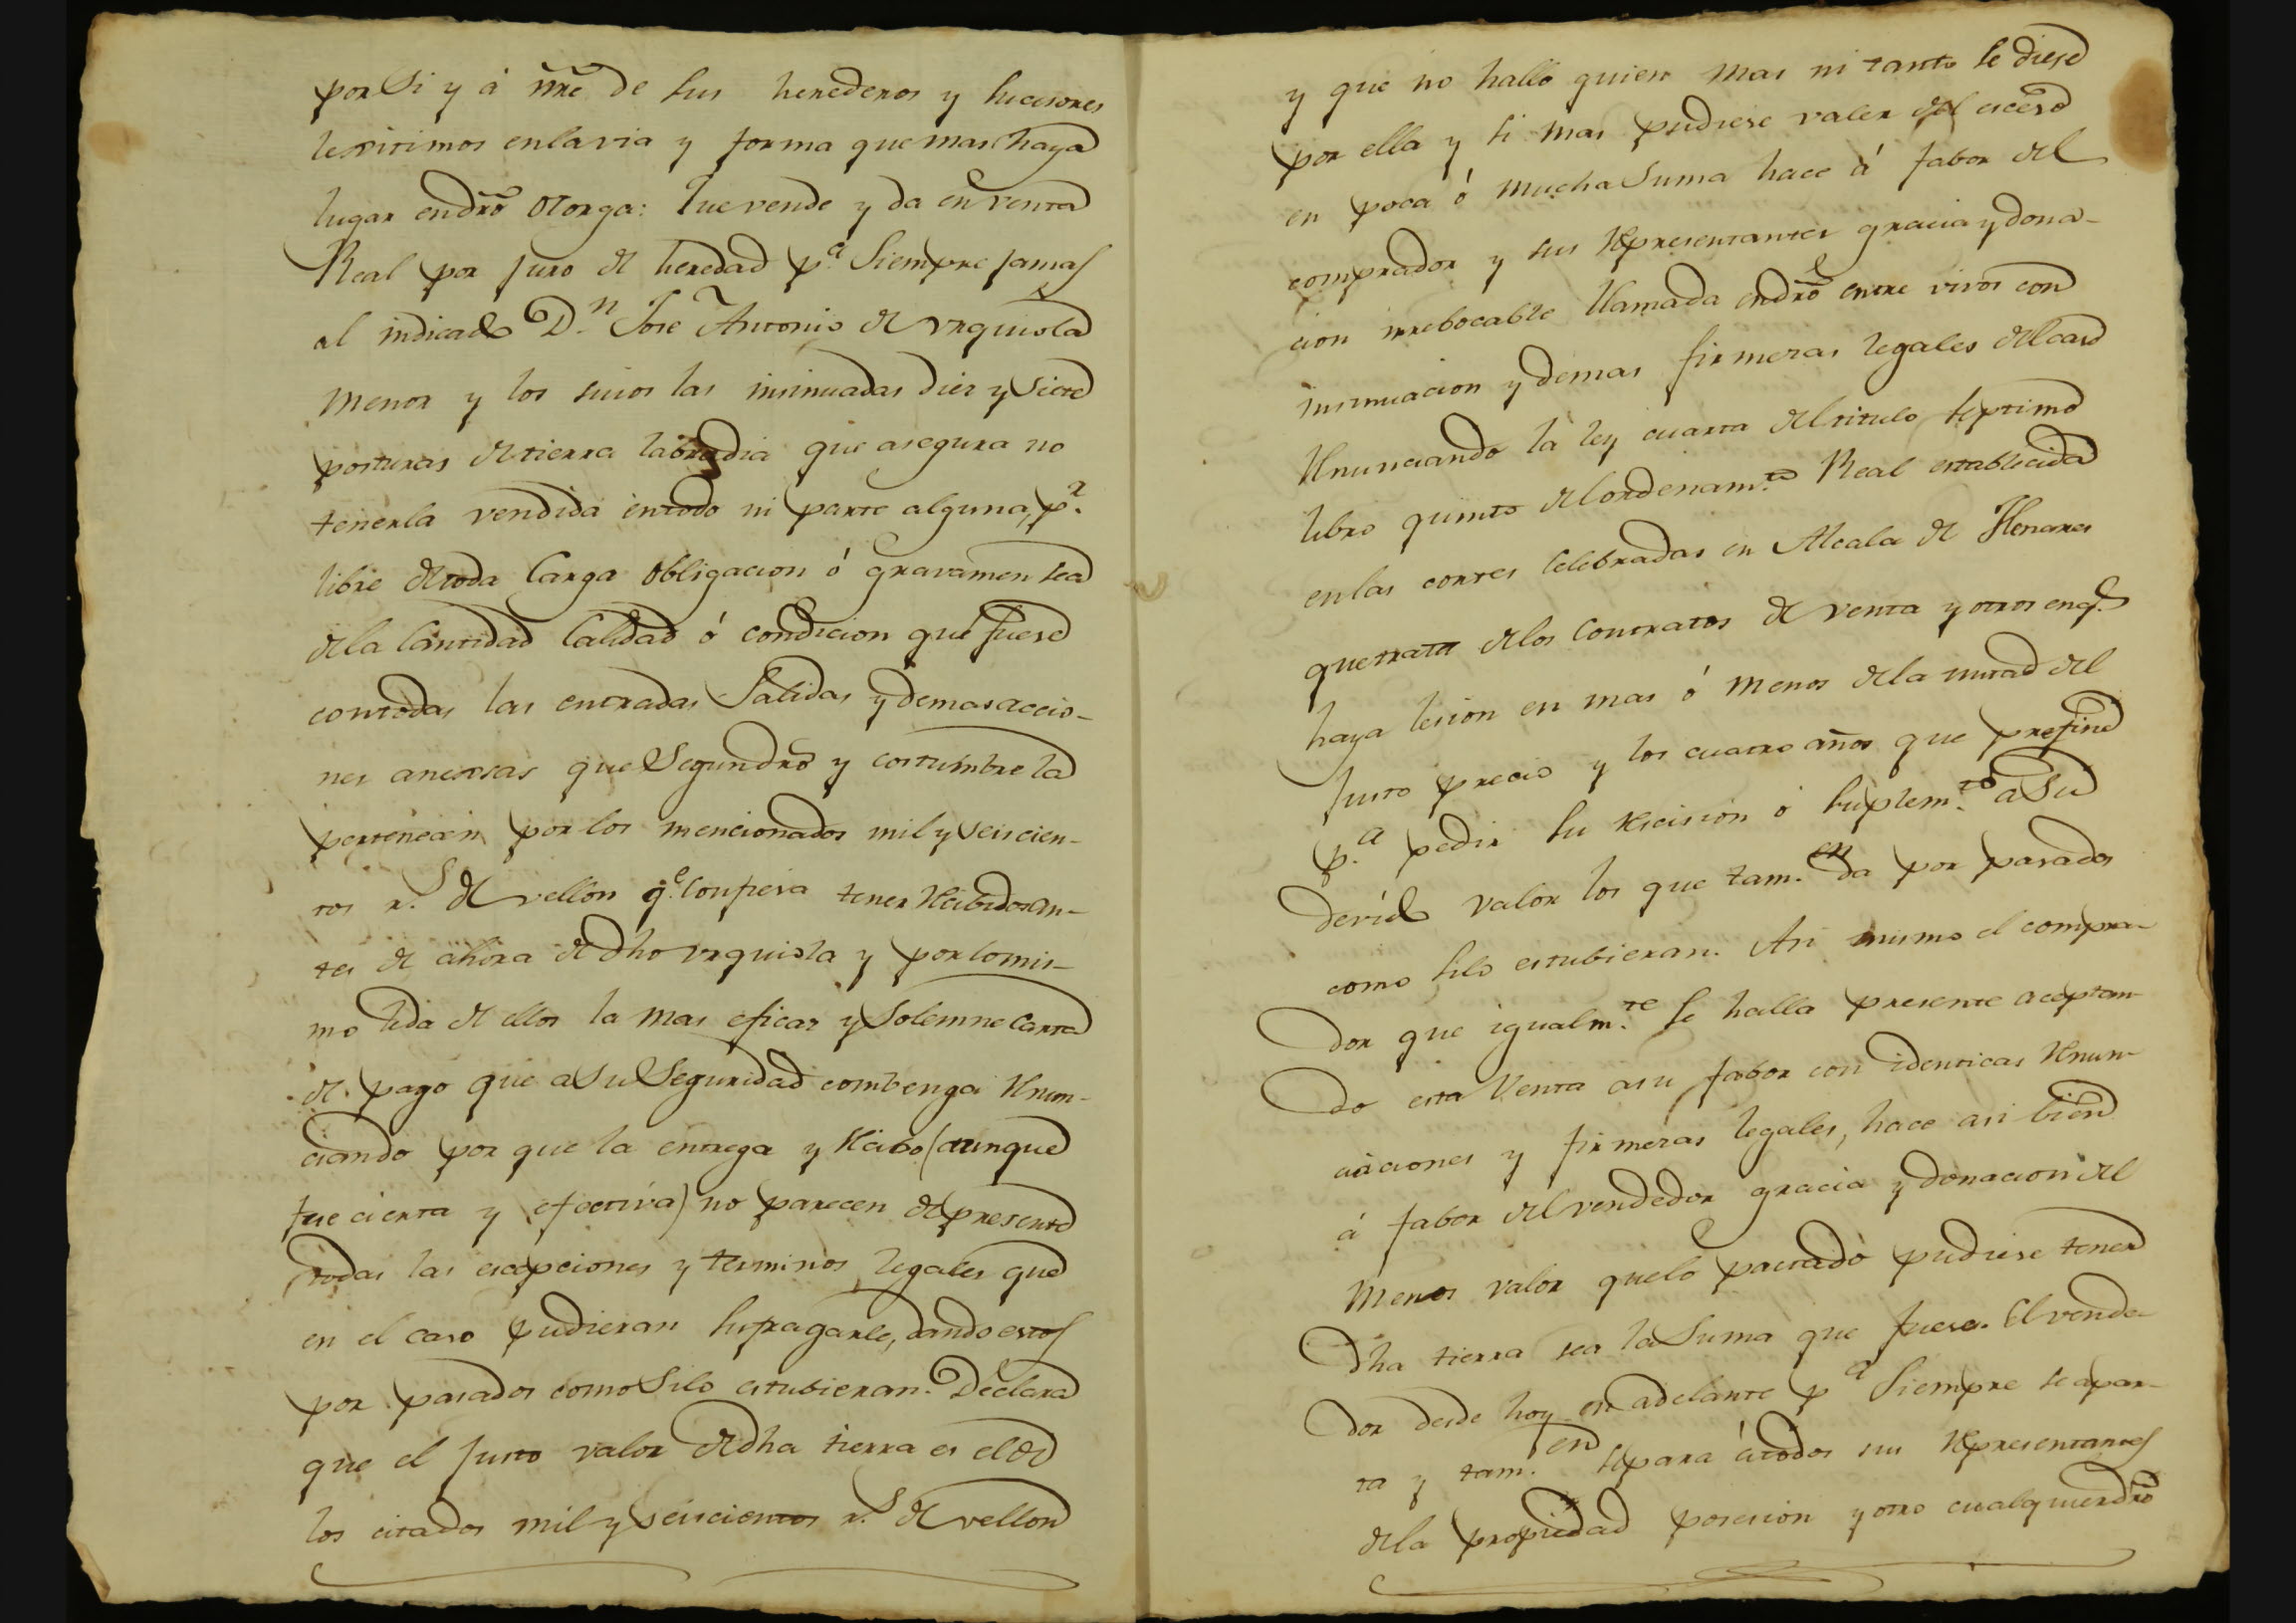 por Si y á nrẽ de sus herederos y sucesores
lexitimos enlavia y forma que mas haya
lugar endrõ Otorga: Que vende y da en venta
Real por juro de heredad p.ª Siempre jamas
al indicado D.n Jose Antonio de Urquiola
menor y los suios las insinuadas diez y Siete
posturas de tierra labradia que asegura no
tenerla vendida entodo ni parte alguna, p.r
libre de toda Carga Obligacion ó gravamen sea
dela Cantidad Calidad ó condicion que fuese
contodas las entradas Salidas y demas accio-
nes anecsas que Segundrõ y costumbre la
pertenecen por los mencionados mil y Seiscien-
tos r.s de vellon q.e Confiesa tener Recibidos an-
tes de ahora de dho Urquiola y por lo mis-
mo leda de ellos la mas eficaz y Solemne Carta
de pago que a Su Seguridad combenga Renun-
ciando por que la entrega y Recibo (aunque
fue cierta y efectiva) no parecen de presente
todas las escepciones y terminos legales que
en el caso pudieran sufragarle, dando estos
por pasados como Silo estubieran. Declara
que el justo valor de dha tierra es el de
los citados mil y seiscientos r.s de vellon
y que no halló quien mas ni tanto le diese
por ella y si mas pudiese valer del exceso
en poca ó mucha Suma hace á fabor del
comprador y sus Representantes gracia y dona-
cion irrebocable llamada endrõ entre vivos con
insinuacion y demas firmezas legales del caso
Renunciando la ley cuarta del titulo septimo
libro quinto del ordenam.to Real establecida
en las cortes Celebradas en Alcala de Henares
que trata de los Contratos de venta y otros enq.e
haya lesion en mas ó menos de la mitad del
justo precio y los cuatro años que prefine
p.ª pedir su rescision ó suplem.to a Su
devido valor los que tam.en da por pasados
como silo estubieran. Asi mismo el compra-
dor que igualm.te se halla presente aceptan-
do esta Venta asu fabor con identicas Renun-
ciaciones y firmezas legales, hace asi bien
á fabor del vendedor gracia y donacion del
menos valor quelo pactado pudiese tener
dha tierra sea la Suma que fuese. El vende-
dor desde hoy en adelante p.ª Siempre se apar-
ta y tam.en separa átodos sus Representantes
dela propiedad posesion y otro cualquierdrõ